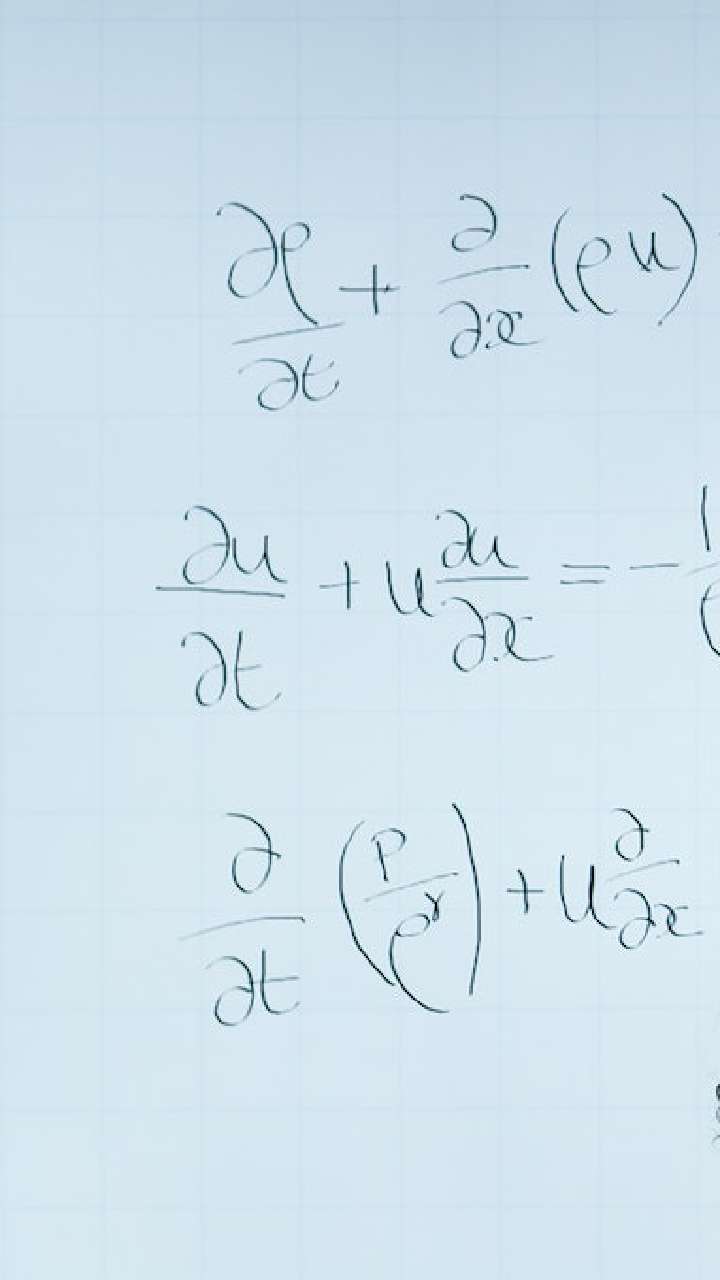 ∂ρ/∂t + ∂/∂x (ρu)
∂u/∂t + u ∂u/∂x = - 1/
∂/∂t (p/ρ^γ) + u ∂/∂x